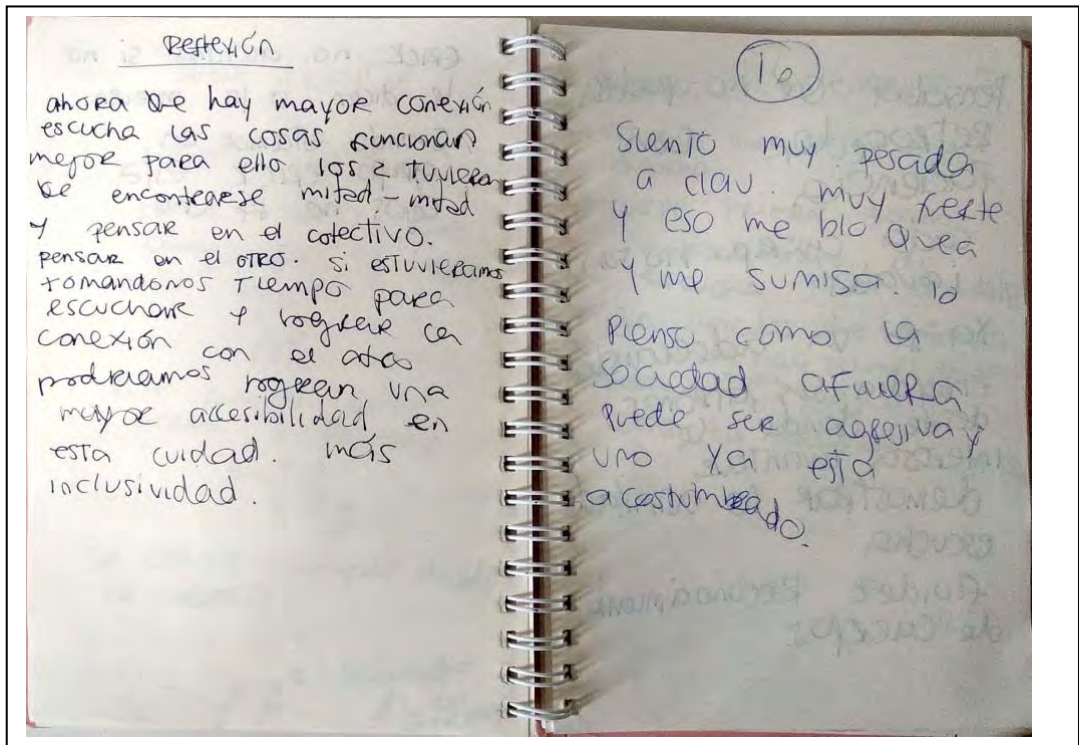 Reflexión
ahora que hay mayor conexión
escucha las cosas funcionan
mejor para ello los 2 tuvieron
de encontrarse mitad-mitad
y pensar en el colectivo.
pensar en el OTRO. si estuvieramos
tomandonos tiempo para
escuchar y lograr la
conexión con el otro
podriamos lograr una
mayor accesibilidad en
esta cuidad. más
inclusividad.
16
Siento muy pesada
a clau. muy fuerte
y eso me bloquea
y me sumisa. lo
pienso como la
sociedad afuera
puede ser agresiva y
uno ya esta
acostumbrado.